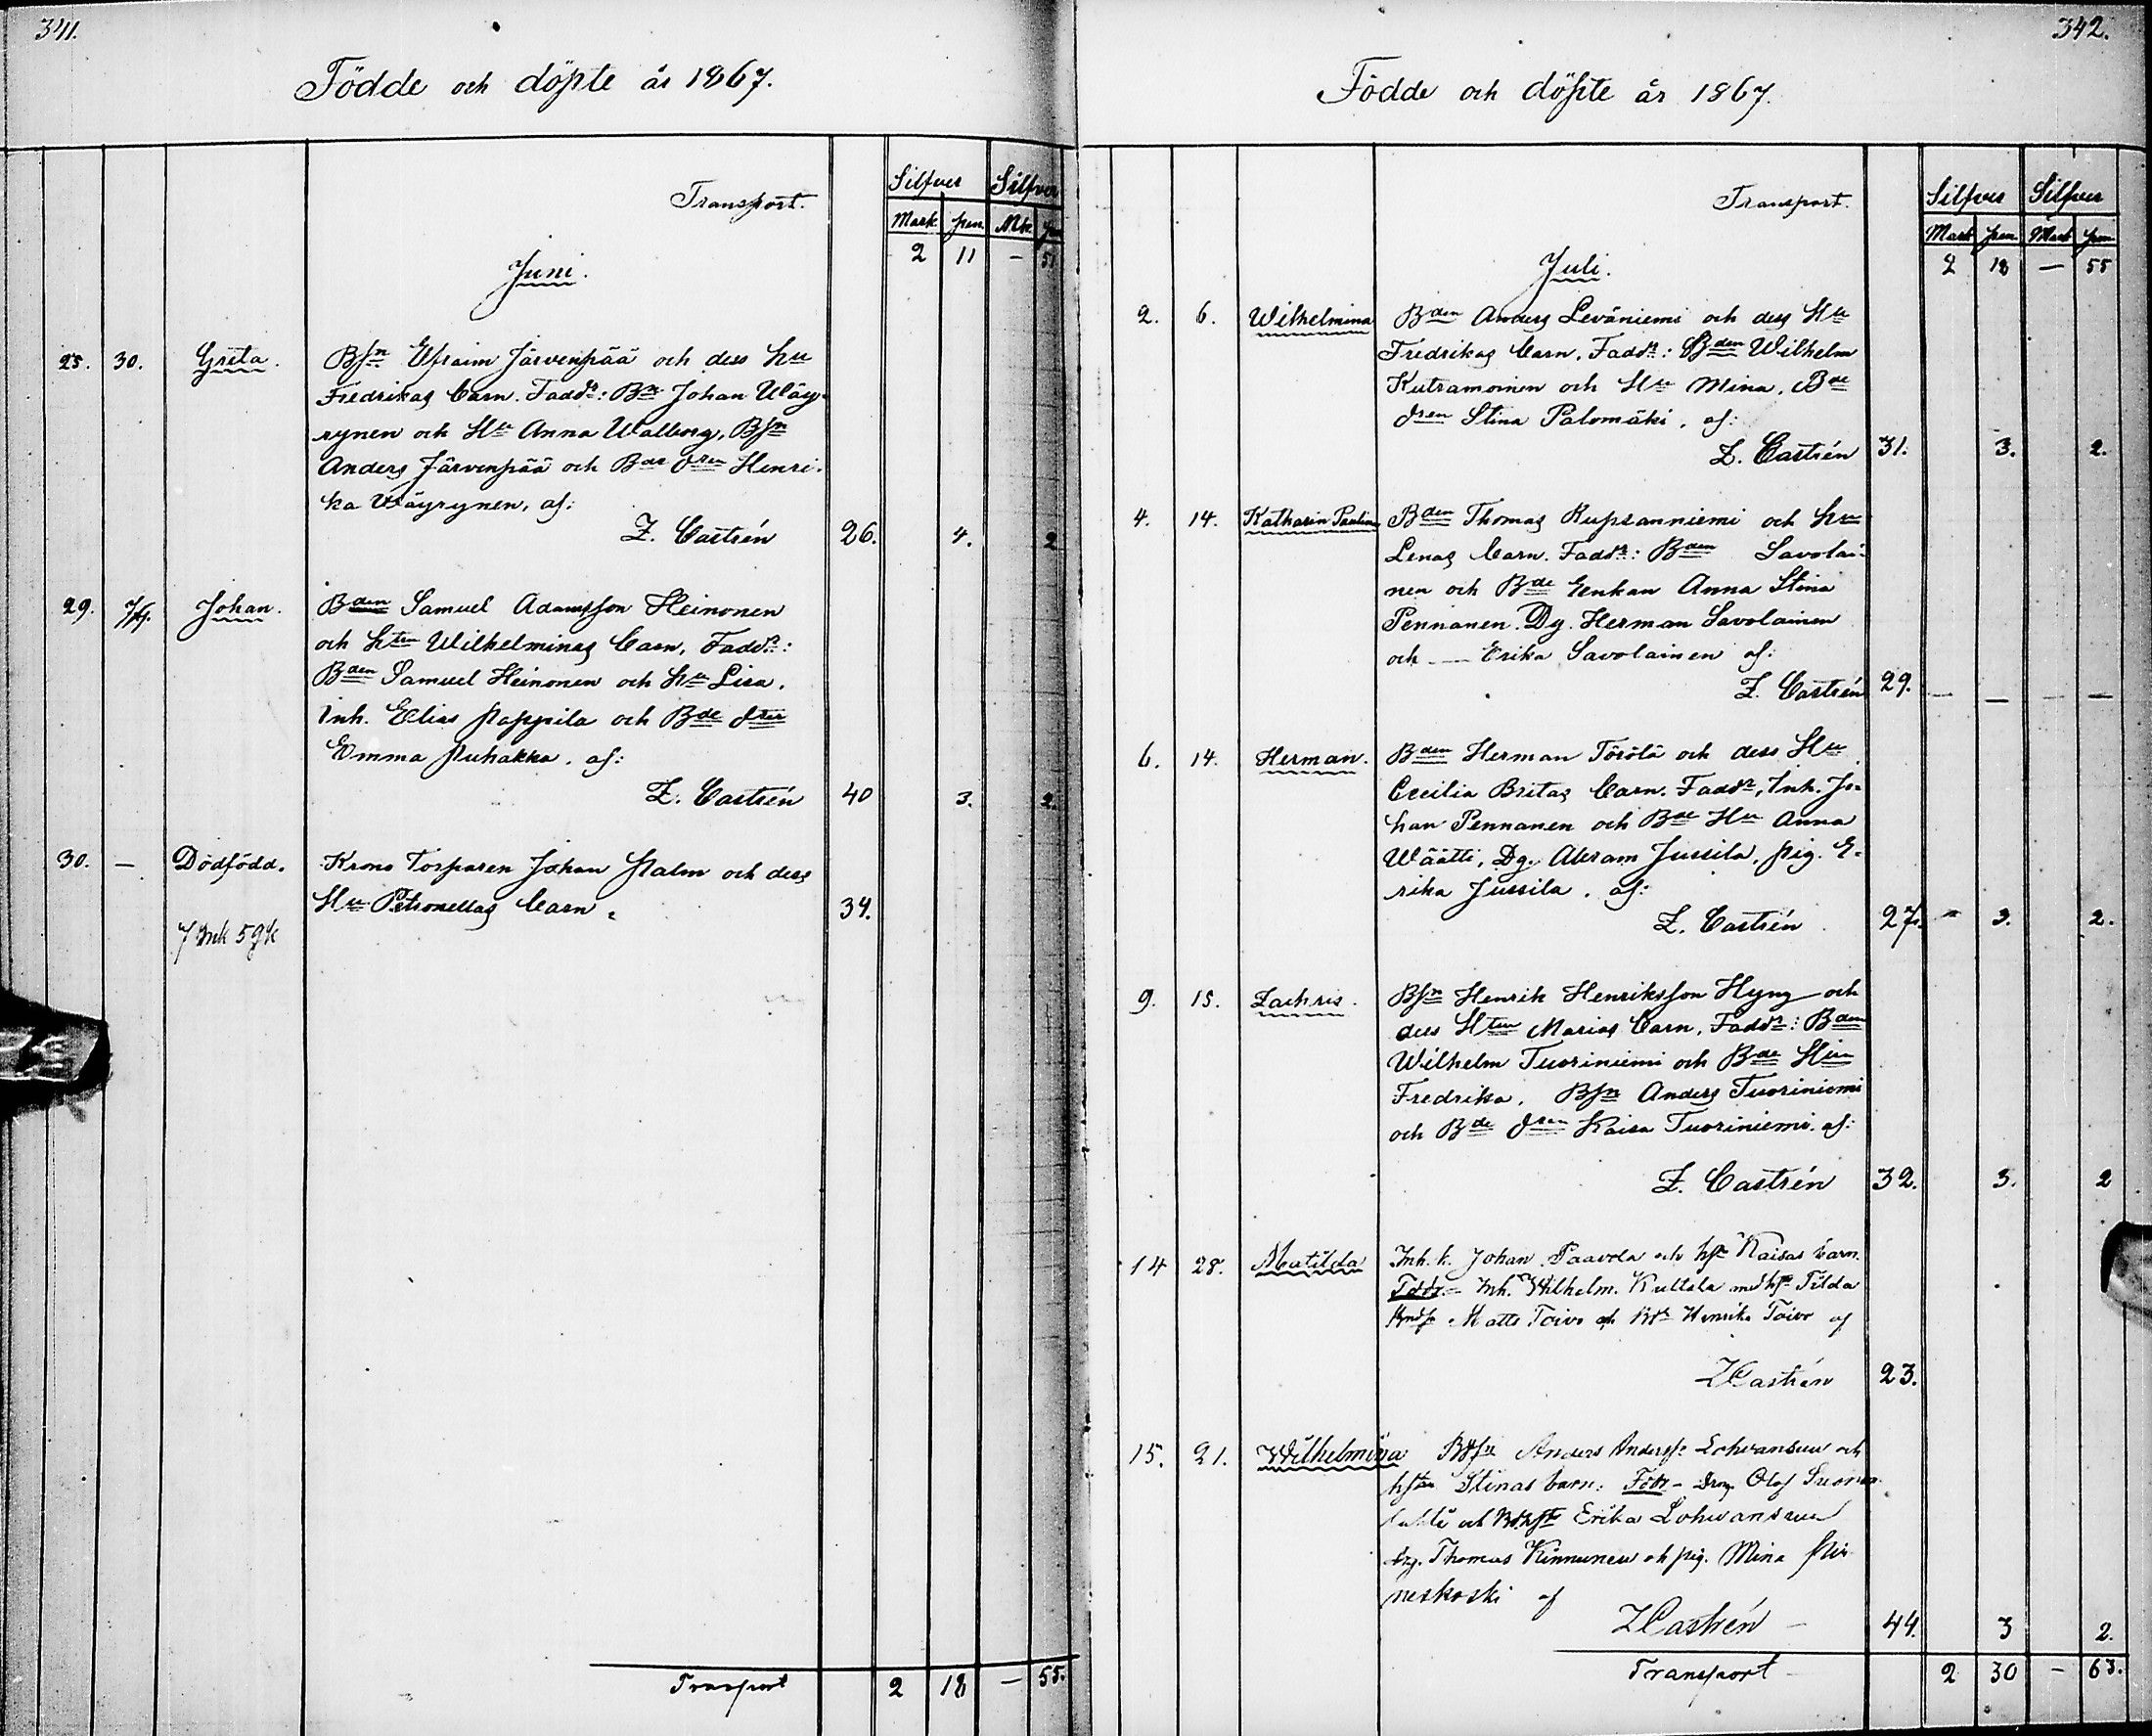 341.
Födde och döpte år 1867.
Transport.
Silfver Silfver
Mark. pen. Mk. pen
2 11 — 51
Juni.
25. 30. Greta. Bsn Efraim Järvenpää och dess Hu
Fredrikas barn. Faddr: Bn Johan Wäy-
rynen och Hu Anna Walborg, Bsn
Anders Järvenpää och Bde dren Henri-
ka Wäyrynen, af:
Z. Castrén 26. 4. 2
29. 7/7. Johan. Bden Samuel Adamsson Heinonen
och Htru Wilhelminas barn, Faddr:
Bden Samuel Heinonen och Hu Lisa.
Inh. Elias Pappila och Bde dter
Emma Puhakka. af:
Z. Castrén 40 3. 2.
30. — Dödfödd. Krono Torparen Johan Palm och dess
Hu Petronellas barn. 34.
7 Mk 59 K
Transport 2 18 — 55.
342.
Födde och döpte år 1867.
Transport.
Silfver Silfver
Mark pen Mark pen
2 18 — 55
Juli.
2. 6. Wilhelmina Bden Anders Leväniemi och dess Hu
Fredrikas barn. Faddr: Bden Wilhelm
Kutramoinen och Hu Mina, Bde
dren Stina Palomäki, af:
Z. Castrén 31. 3. 2.
4. 14. Katharin Paulina Bden Thomas Rupsanniemi och Hu
Lenas barn. Faddr: Bden Savolai-
nen och Bde Enkan Anna Stina
Pennanen. Dg. Herman Savolainen
och — Erika Savolainen af:
Z. Castrén 29. — — — —
6. 14. Herman. Bden Herman Törölä och dess Hu
Cecilia Britas barn. Faddr, Inh. Jo-
han Pennanen och Bde Hu Anna
Wäätti, Dg. Abram Jussila, pig. E-
rika Jussila. af:
Z. Castrén 27. - 3. 2.
9. 15. Zachris. Bsn Henrik Henriksson Hyng och
dess Htru Marias barn, Faddr: Bden
Wilhelm Tuoriniemi och Bde Hu
Fredrika, Bsn Anders Tuoriniemi
och Bde dren Kaisa Tuoriniemi. af:
Z. Castrén 32. 3. 2
14 28. Matilda Inh. k. Johan Paavola och hu Kaisas barn.
Fddr.- Inh. Wilhelm. Kuttala med hu Tilda
Matts Toivo och Henrika Toivo af
ZCastrén 23.
15. 21. Wilhelmina Bdsn Anders Anderss. Lohvansuu och
hstru Stinas barn. Fddr - Drg Olof Suonna-
lahti och Erika Lohvansuu
drg. Thomas Kinnunen och pig. Mina Pir
neskoski af
ZCastrén — 44. 3 2.
Transport — 2 30 — 63.